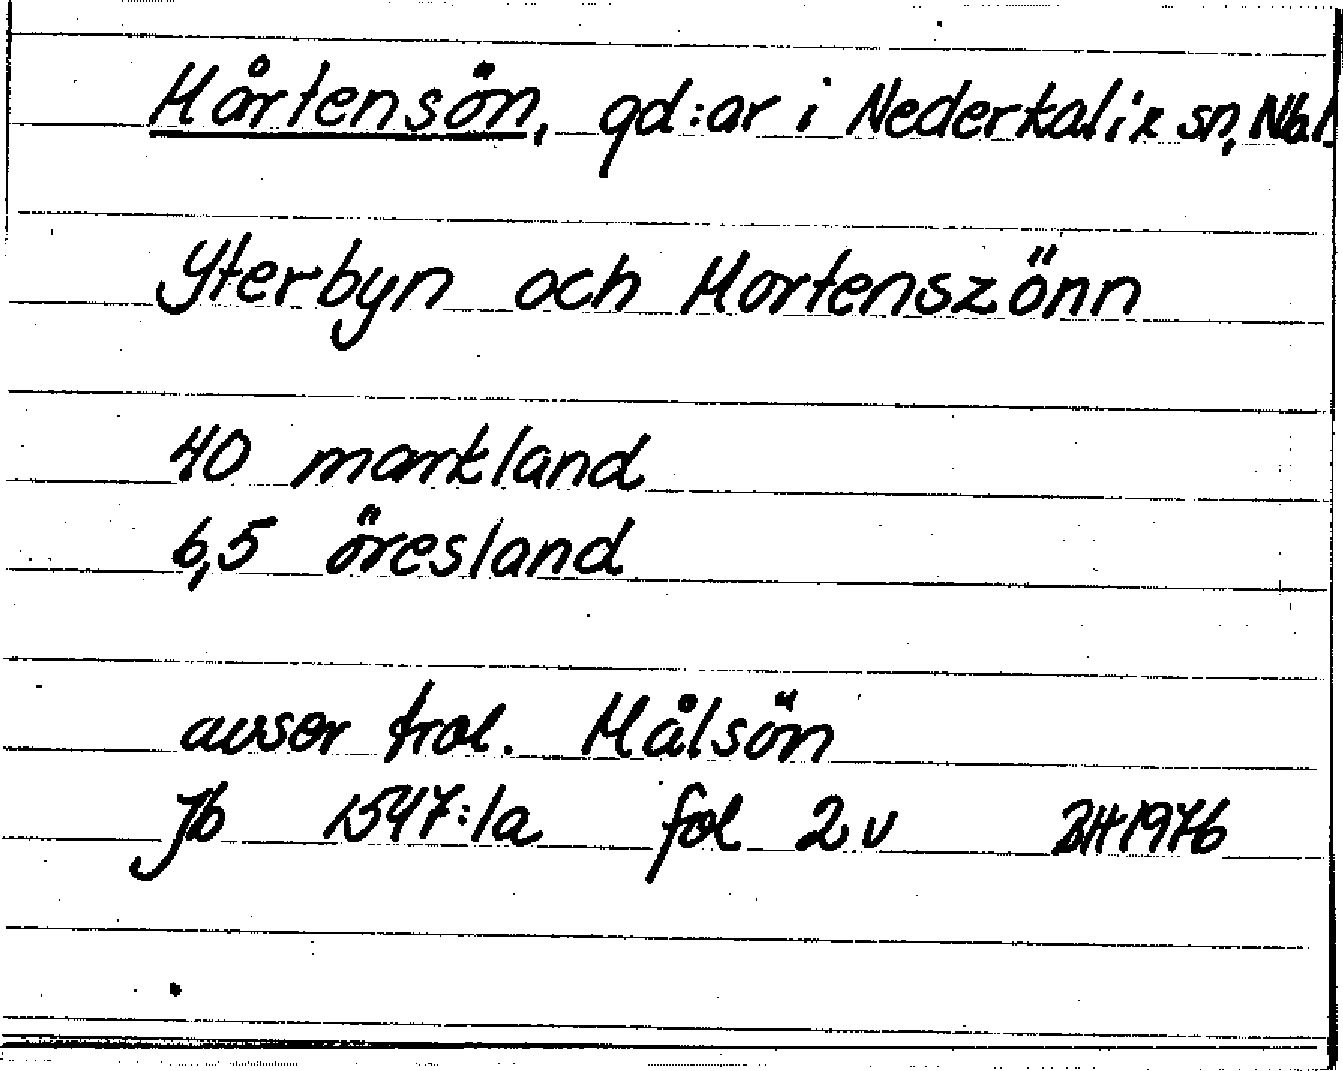 Mårtensön, gd:ar i Nederkalix sn, Nb.l.
Yterbyn och Mortenszönn
40 markland
6,5 öresland
avser trol. Målsön
Jb 1547:1a fol 2 v BH 1976